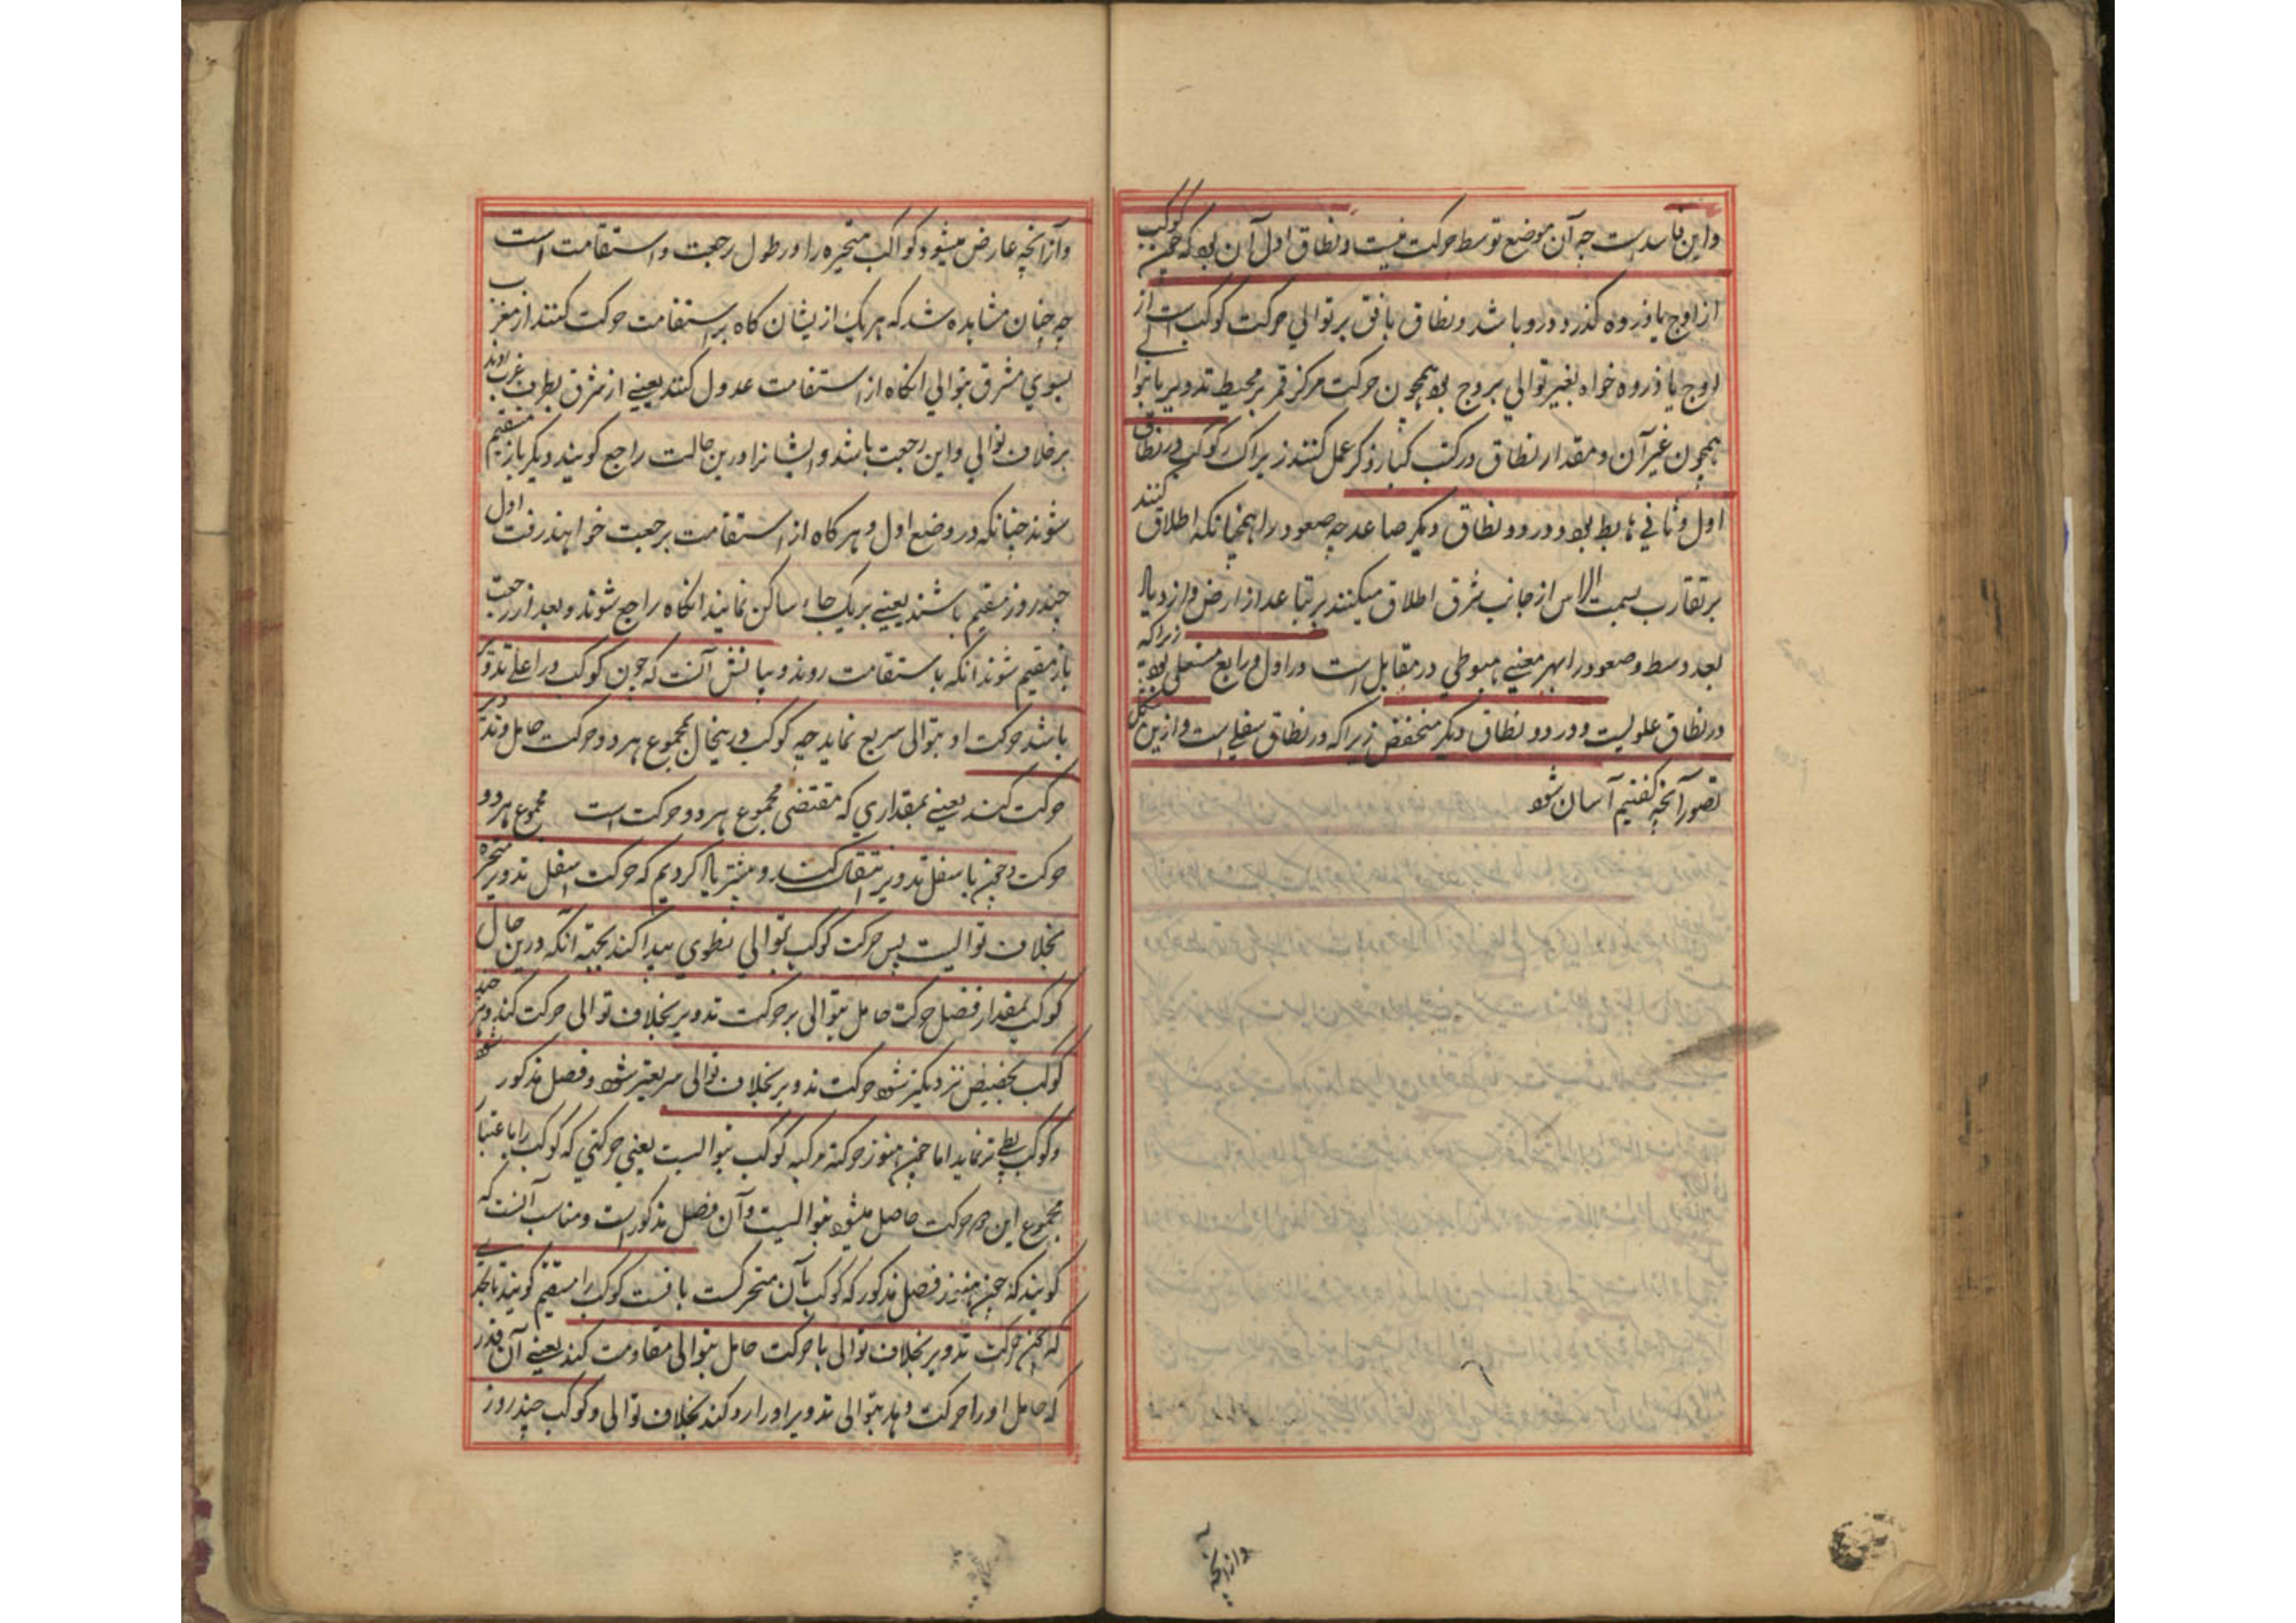 واین فاسد است چه آن موضع توسط حرکت نیست و نطاق اول آن بود که چون کوکب
از اوج یا ذروه کذرد درو باشد و نطاق باقی بر توالی حرکت کوکب است از
اوج یا ذروه خواه بغیر توالی بروج بود همچون حرکت مرکز قمر بر محیط تدویر یا بتوالی
همچون غیر آن و مقدار نطاق در کتب کبار ذکر عمل کنند زیراک کوکب در نطاق
اول و ثانی هابط بود و در دو نطاق دیکر صاعد چه صعود را همچنانکه اطلاق کنند
بر تقارب بسمت الراس از جانب شرق اطلاق میکنند بر تباعد از ارض و ازدیاد
بعد وسط و صعود را بهر معنی هبوطی در مقابل است در اول و رابع مستعلی بود زیراکه
در نطاق علویست و در دو نطاق دیکر منخفض زیراکه در نطاق سفلی است و ازین شکل
تصور آنچه کفتیم آسان شود
وازانچه
وآزانچه عارض میشود کواکب متحیره را در طول رجعت و استقامت است
چه چنان مشاهده شد که هر یک از یشان کاه بر استقامت حرکت کنند از مغرب
بسوی مشرق بتوالی انکاه از استقامت عدول کنند یعنی از مشرق بطرف غرب روند
بر خلاف توالی واین رجعت باشد و ایشانرا درین حالت راجع کویند و دیکر باز مستقیم
شوند چنانکه در وضع اول و هر کاه از استقامت برجعت خواهند رفت اول
چند روز مقیم باشند یعنی بر یک جاء ساکن نمایند انکاه راجع شوند و بعد از رجعت
باز مقیم شوند انکه باستقامت روند و بیانش آنست که چون کوکب در اعلی تدویر
باشد حرکت او بتوالی سریع نماید چه کوکب درینحال بمجموع هر دو حرکت حامل و تدویر
حرکت کند یعنی بمقداری که مقتضی مجموع هر دو حرکت است مجموع هر دو
حرکت و چون باسفل تدویر انتقال کند و پیشتر یاد کردیم که حرکت اسفل تدویر متحیره
بخلاف توالیست پس حرکت کوکب بتوالی بطوی پیدا کند بجهة آنکه درین حال
کوکب بمقدار فضل حرکت حامل بتوالی بر حرکت تدویر بخلاف توالی حرکت کند و هر چند
کوکب بحضیض نزدیکتر شود حرکت تدویر بخلاف توالی سریعتر شود و فضل مذکور
وکوکب بطی تر نماید اما چون هنوز حرکة مرکبه کوکب بتوالیست یعنی حرکتی که کوکب را باعتبار
مجموع این دو حرکت حاصل میشود بتوالیست و آن فضل مذکور است و مناسب آنست که
کویند که چون هنوز فضل مذکور که کوکب بآن متحرکست باقیست کوکب را مستقیم کویند تا بحدی
که چون حرکت تدویر بخلاف توالی با حرکت حامل بتوالی مقاومت کند یعنی آن قدر
که حامل او را حرکت دهد بتوالی تدویر او را رد کند بخلاف توالی و کوکب چند روز